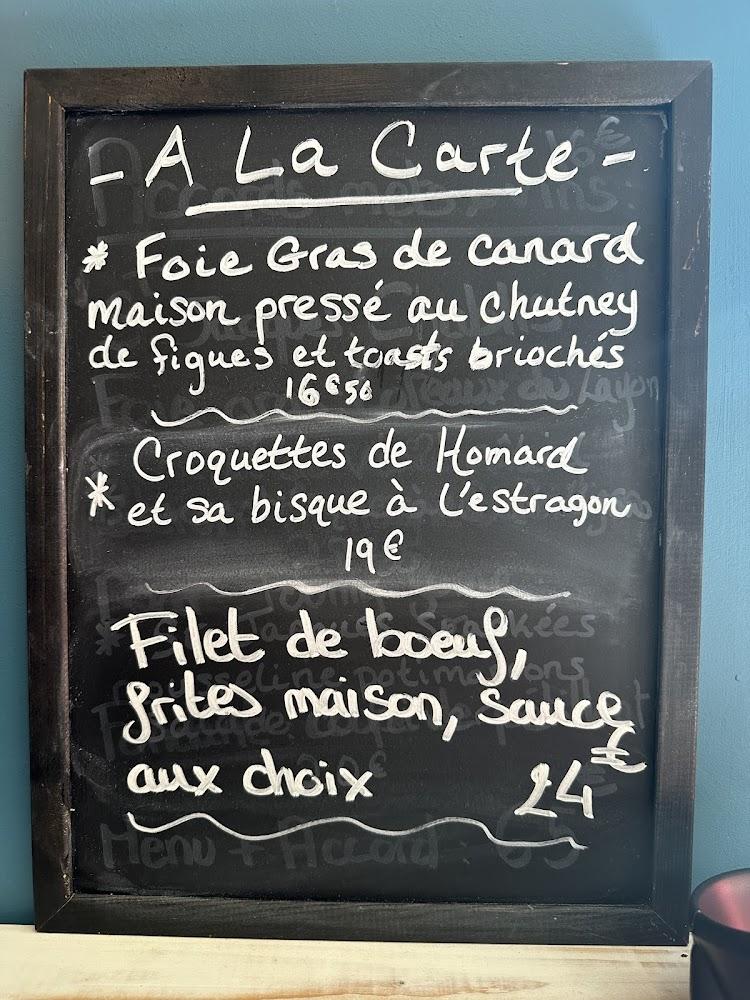 - A La Carte -
* Foie Gras de canard
maison pressé au chutney
de figues et toasts briochés
16€50
Croquettes de Homard
* et sa bisque à l'estragon
19€
Filet de boeuf,
frites maison, sauce
aux choix 24€
Menu + Accord : 65